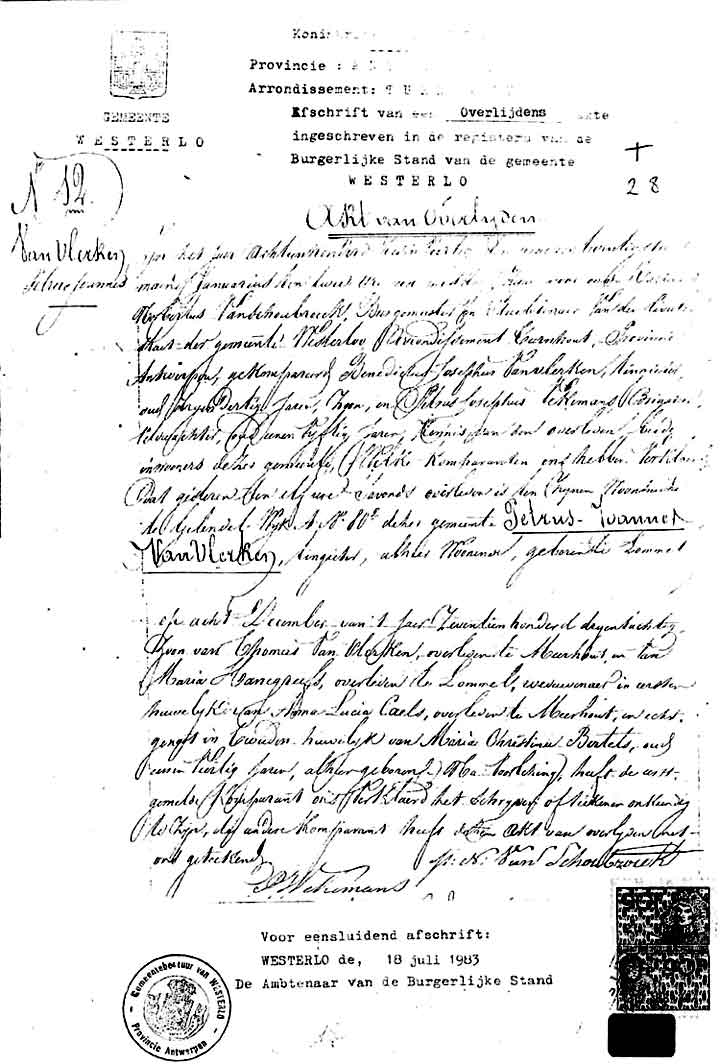 Provincie :
Arrondissement:
GEMEENTE
WESTERLO
Afschrift van een Overlijdens akte
ingeschreven in de registers van de
Burgerlijke Stand van de gemeente
WESTERLO
+
28
N 12
Van Vlerken
Petrus Joannes
Akt van Overlyden
het jaer Achttienhonderd
maend Januarius ten twee ure
Norbertus Vanschoubroeck, Burgemeester
Staet der gemeente Westerloo Arrondissement Turnhout, Provincie
Antwerpen, gekompareerd Benedictus Josephus Van Vlerken, tingieter
oud dryen Dertig Jaren, Zoon, en Petrus Josephus Wekemans
oud eenen vyftig Jaren, Kennis van den overleden, beide
inwooners dezer gemeente, Welke Komparanten ons hebben verklaerd
Dat gisteren ten elf ure 'S avonds overleden is ten Zynen Woonhuize
Wyk A No 80 dezer gemeente Petrus-Joannes
Van Vlerken, tingieter, alhier Woonende, geboren te Lommel
op acht December van 't Jaer Zeventienhonderd dryentachtig,
Zoon van Thomas Van Vlerken, overleden te Meerhout, en van
Maria, overleden te Lommel, weduwenaer in eersten
huwelyk van Anna Lucia Caels, overleden te Meerhout, en echt-
genoot in tweeden huwelyk van Maria Christina Bertels, oud
eenen veertig Jaren, alhier geboren. Na Voorlezing, heeft de eerst-
gemelde Komparant ons Verklaerd het Schryven of teekenen onkundig
te Zyn, de andere Komparant heeft dezen Akt van overlyden met
ons geteekend
P. J. Wekemans
N. Van Schoubroeck
Voor eensluidend afschrift:
WESTERLO de, 18 juli 1983
De Ambtenaar van de Burgerlijke Stand
Gemeentebestuur van WESTERLO
Provincie Antwerpen